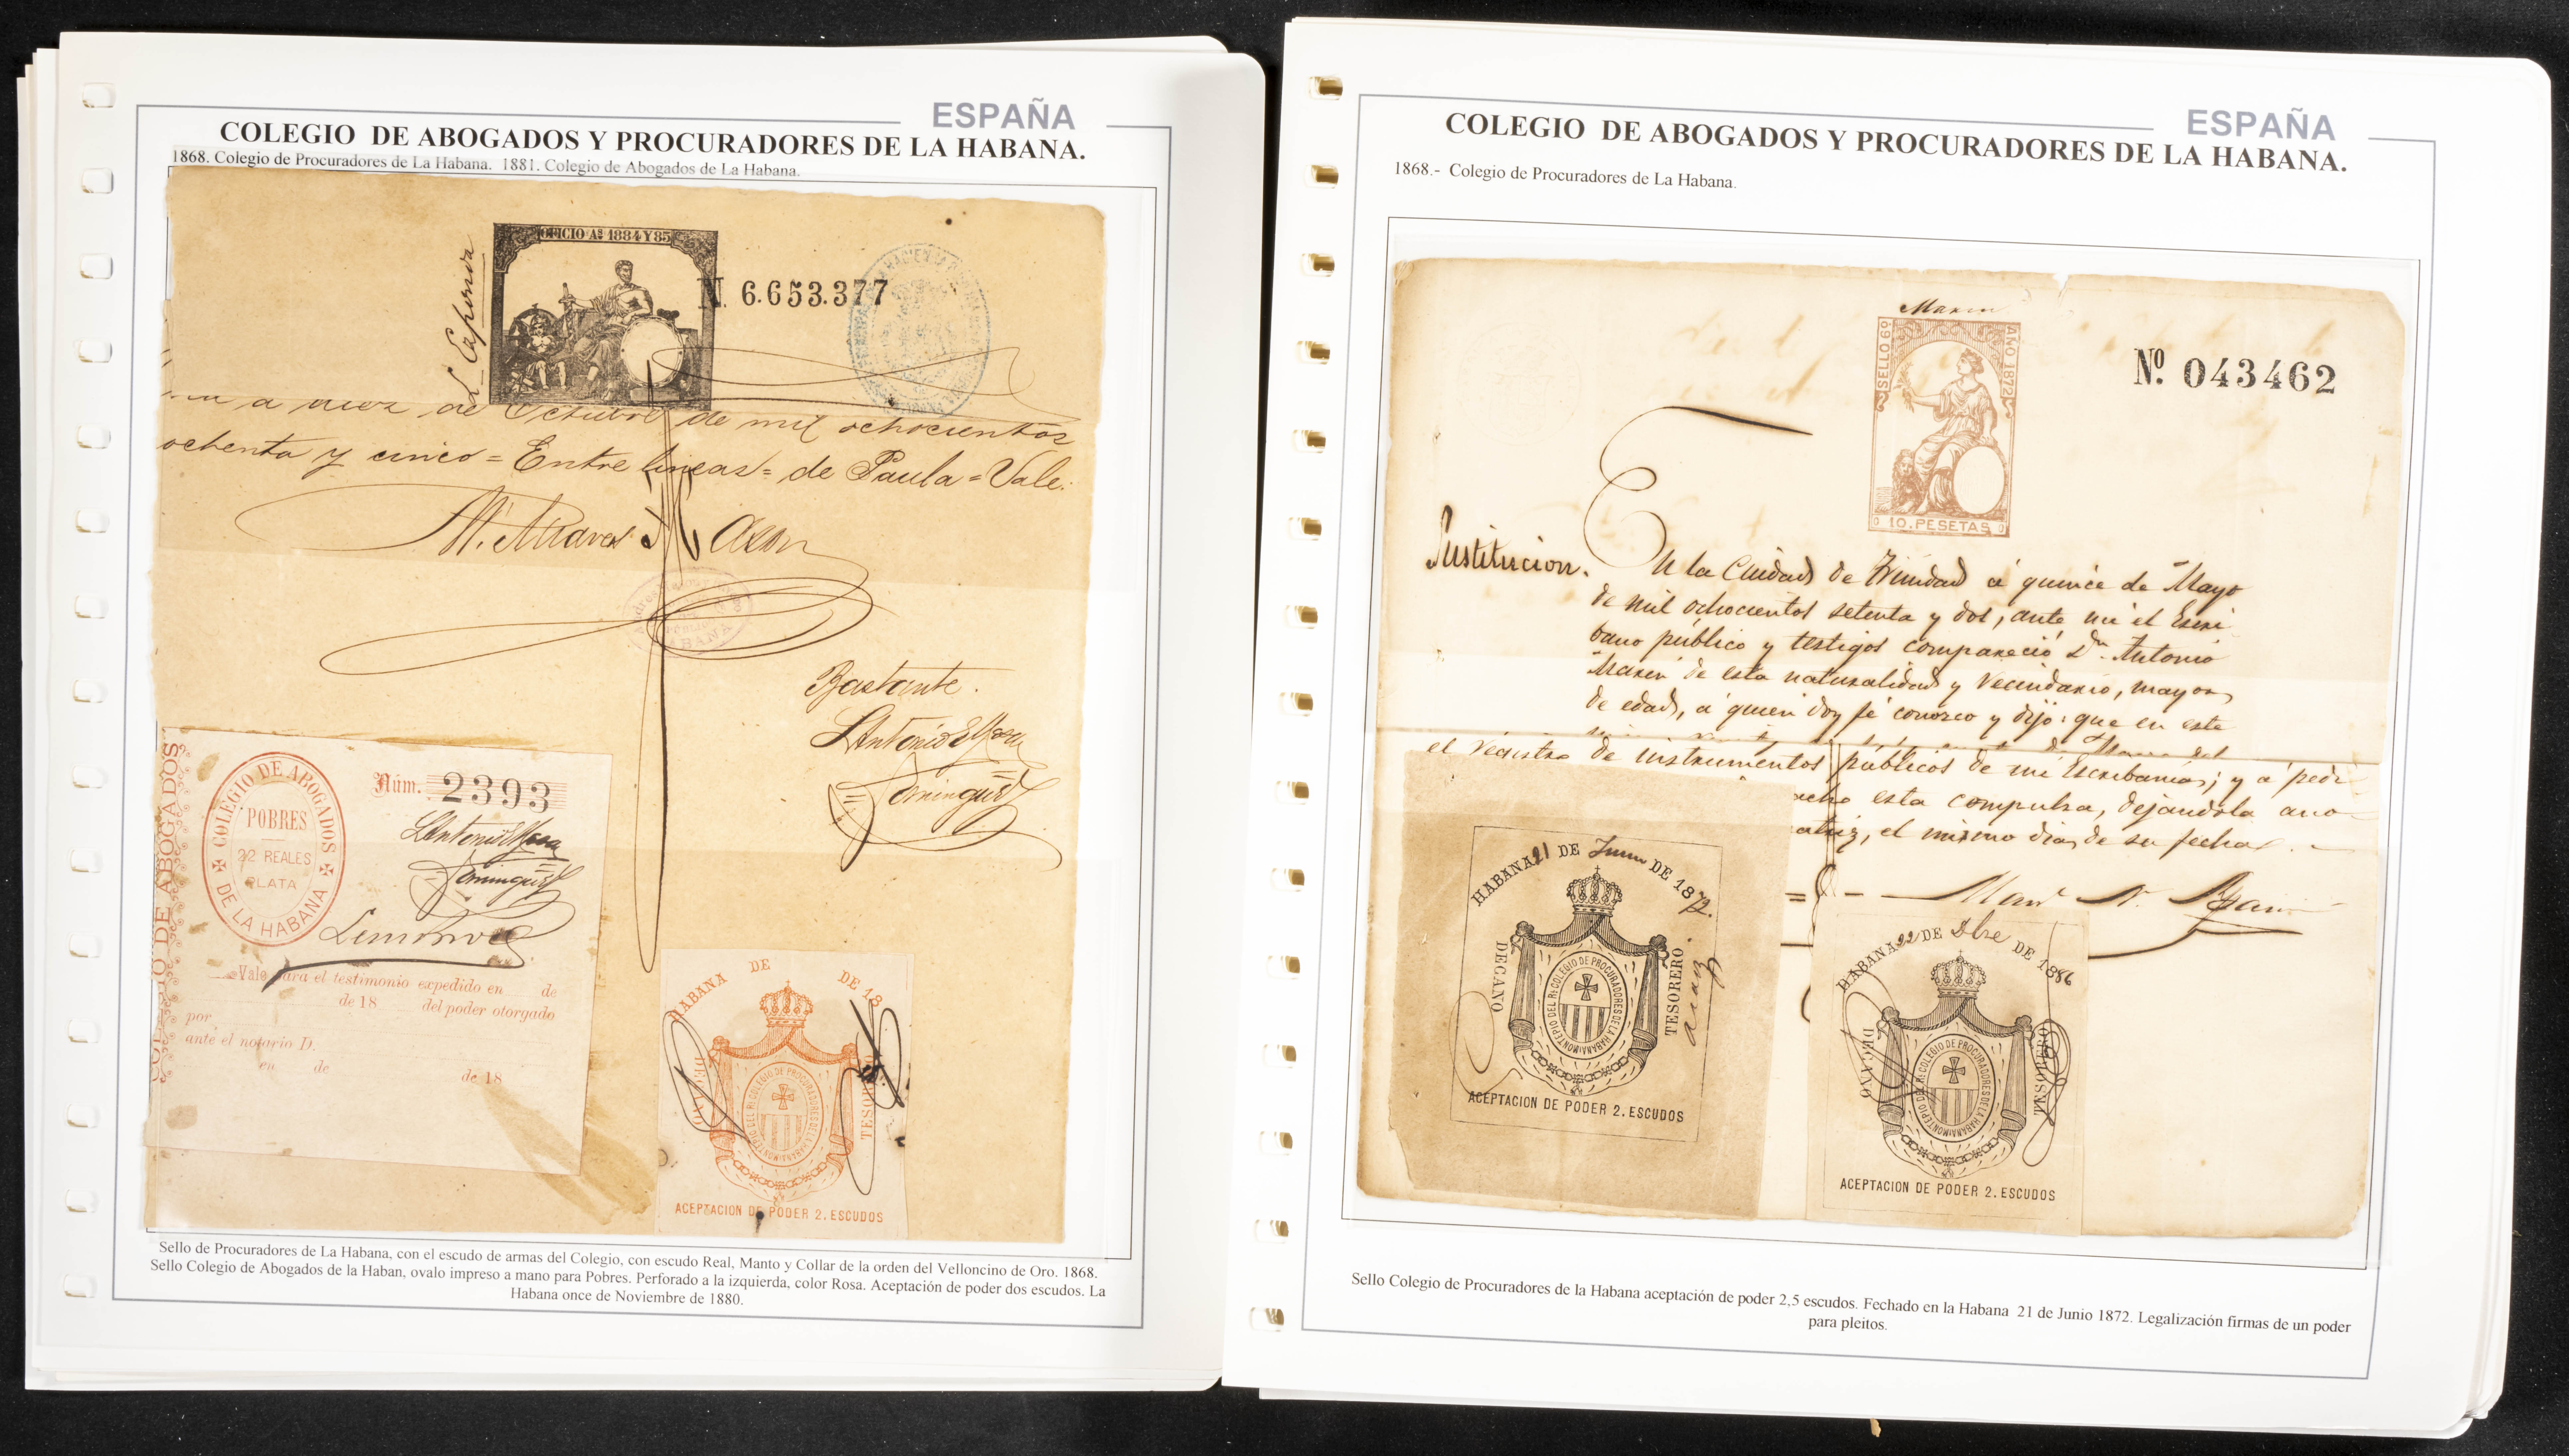 ESPAÑA
COLEGIO DE ABOGADOS Y PROCURADORES DE LA HABANA.
1868. Colegio de Procuradores de La Habana. 1881. Colegio de Abogados de La Habana.
OFICIO Aº 1884 Y 85
N. 6.653.377
de Octubre de mil ochocientos
ochenta y cinco = Entre lineas = de Paula = Vale.
Bastante.
COLEGIO DE ABOGADOS
COLEGIO DE ABOGADOS
DE LA HABANA
POBRES
22 REALES
PLATA
Núm. 2393
Vale para el testimonio expedido en de
de 18 del poder otorgado
por
ante el notario D.
en de de 18
HABANA DE DE 18
DECANO
TESORERO
MONTEPIO DEL Rl COLEGIO DE PROCURADORES DE LA HABANA
ACEPTACION DE PODER 2. ESCUDOS
Sello de Procuradores de La Habana, con el escudo de armas del Colegio, con escudo Real, Manto y Collar de la orden del Velloncino de Oro. 1868.
Sello Colegio de Abogados de la Haban, ovalo impreso a mano para Pobres. Perforado a la izquierda, color Rosa. Aceptación de poder dos escudos. La
Habana once de Noviembre de 1880.
ESPAÑA
COLEGIO DE ABOGADOS Y PROCURADORES DE LA HABANA.
1868.- Colegio de Procuradores de La Habana.
SELLO 6º
AÑO 1872
10. PESETAS
Nº. 043462
En la Ciudad de Trinidad á quince de Mayo
de mil ochocientos setenta y dos, ante mi el Escri
bano público y testigos compareció Dn. Antonio
Marin de esta naturalidad y vecindario, mayor
de edad, á quien doy fé conozco y dijo: que en este
el registro de instrumentos públicos de mi Escribania; y á pedi
esta compulsa, dejandola ano
el mismo dia de su fecha.
HABANA 21 DE Junio DE 1872.
DECANO
TESORERO
MONTEPIO DEL Rl COLEGIO DE PROCURADORES DE LA HABANA
ACEPTACION DE PODER 2. ESCUDOS
HABANA 22 DE Dbre DE 1886
DECANO
TESORERO
MONTEPIO DEL Rl COLEGIO DE PROCURADORES DE LA HABANA
ACEPTACION DE PODER 2. ESCUDOS
Sello Colegio de Procuradores de la Habana aceptación de poder 2,5 escudos. Fechado en la Habana 21 de Junio 1872. Legalización firmas de un poder
para pleitos.